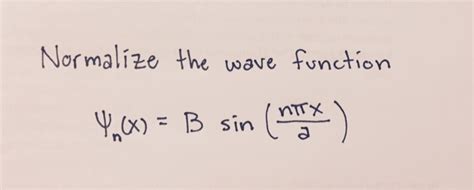 Normalize the wave function
Ψₙ(x) = B sin (nπx/a)